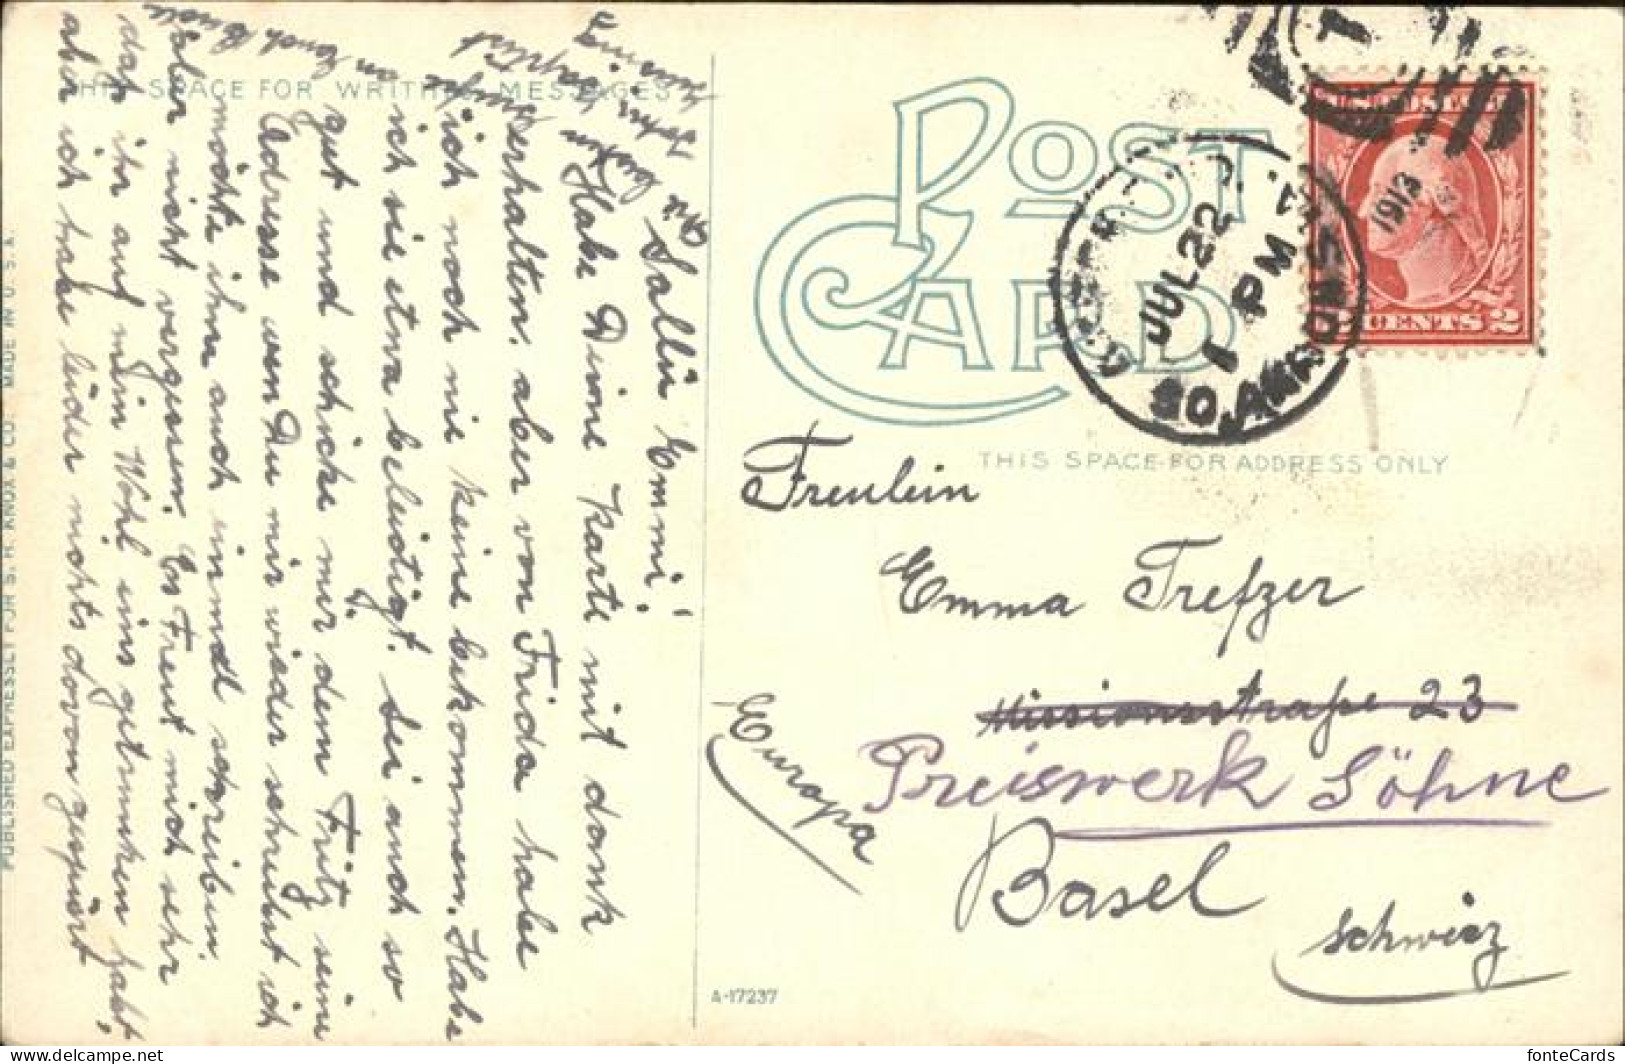 THIS SPACE FOR WRITTEN MESSAGES
Sallü Emmi!
Habe Deine Karte mit dank
erhalten. aber von Frida habe
ich noch nie keine bekommen. Habe
ich sie etwa beleidigt. Sei auch so
gut und schicke mir dem Fritz seine
Adresse wen Du mir wieder schreibst ich
möchte ihm auch einmal schreiben.
aber nicht vergessen. Es Freut mich sehr
das ihr auf mein Wohl eins getrunken habt,
aber ich habe leider nichts davon gespürt
PUBLISHED EXPRESSLY FOR S. H. KNOX & CO. MADE IN U. S. A.
POST CARD
JUL 22
1 PM
1913
SO. AKRON STA.
2 CENTS 2
THIS SPACE FOR ADDRESS ONLY
Freulein
Emma Trefzer
Missionsstraße 23
Preiswerk Söhne
Basel
Schweiz
Europa
A-17237
fonteCards
delcampe.net